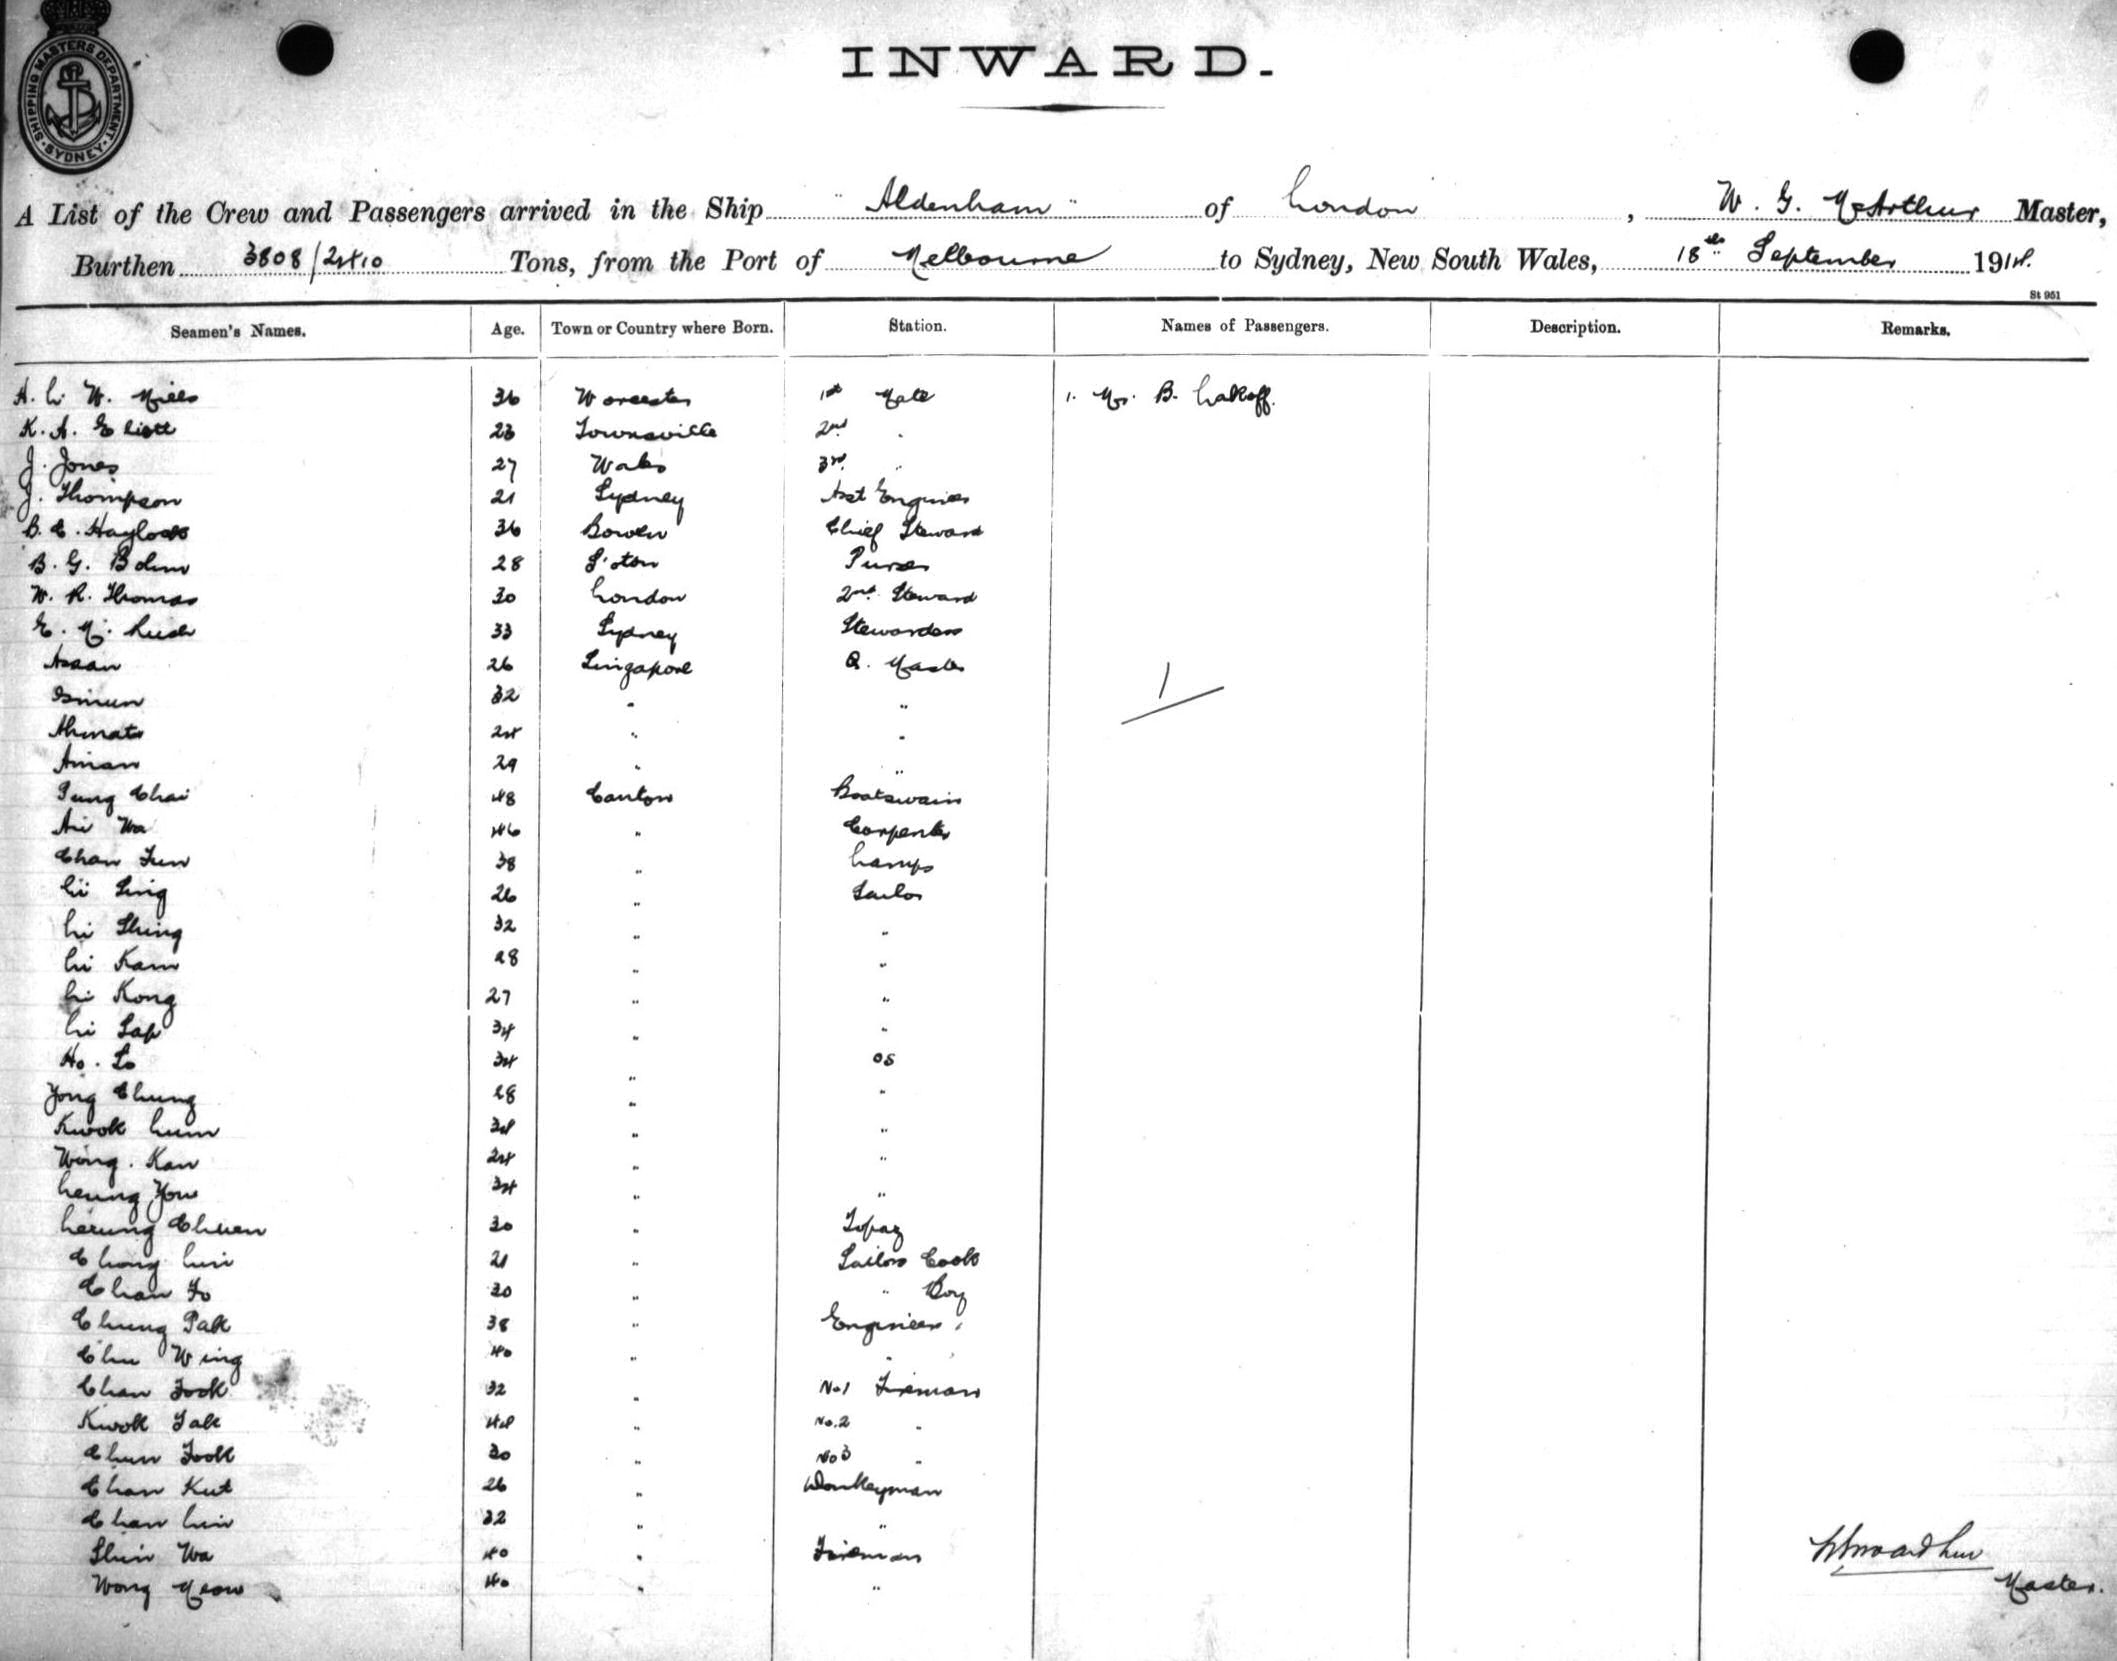 SHIPPING MASTERS DEPARTMENT SYDNEY
INWARD.
A List of the Crew and Passengers arrived in the Ship "Aldenham" of London, W. G. McArthur Master,
Burthen 3808/2410 Tons, from the Port of Melbourne to Sydney, New South Wales, 18th September 1914.
St 951
Seamen's Names. Age. Town or Country where Born. Station. Names of Passengers. Description. Remarks.
A. L. W. Mills 36 Worcester 1st Mate 1. Mr. B. Lakoff.
K. A. Eliott 23 Townsville 2nd "
J. Jones 27 Wales 3rd. "
J. Thompson 21 Sydney Asst Engineer
B. E. Haylock 36 Bowen Chief Steward
B. G. Bolim 28 S'ton Purser
W. R. Thomas 30 London 2nd Steward
E. M. Lush 33 Sydney Stewardess
Assan 26 Singapore Q. Master
Ismun 32 " "
Ahmat 24 " "
1
Aman 29 " "
Pung Chai 48 Canton Boatswain
Ai Wa 46 " Carpenter
Chan Fun 38 " Lamps
Li Sing 26 " Sailor
Li Shing 32 " "
Li Kam 28 " "
Li Kong 27 " "
Li Sap 34 " "
Ho. So 34 " OS
Yong Chung 28 " "
Kwok Lum 34 " "
Wong. Kan 24 " "
Leung You 34 " "
Leeung Chuen 30 " Topaz
Chong Lui 21 " Sailors Cook
Chan Fo 30 " " Boy
Chung Pak 38 " Engineers
Chu Wing 40 " "
Chan Fook 32 " No 1 Fireman
Kwok Tak 44 " No. 2 "
Chun Fook 30 " No 3 "
Chan Kut 26 " Donkeyman
Chan Lui 32 " "
Shin Wa 40 " Fireman
Wong Meow 40 " "
Master.